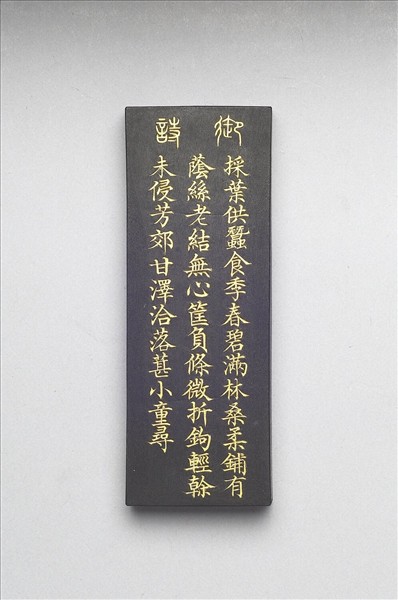 御詩
採葉供蠶食季春碧滿林桑柔鋪有
蔭絲老結無心筐負條微折鉤輕榦
未侵芳郊甘澤洽落葚小童尋